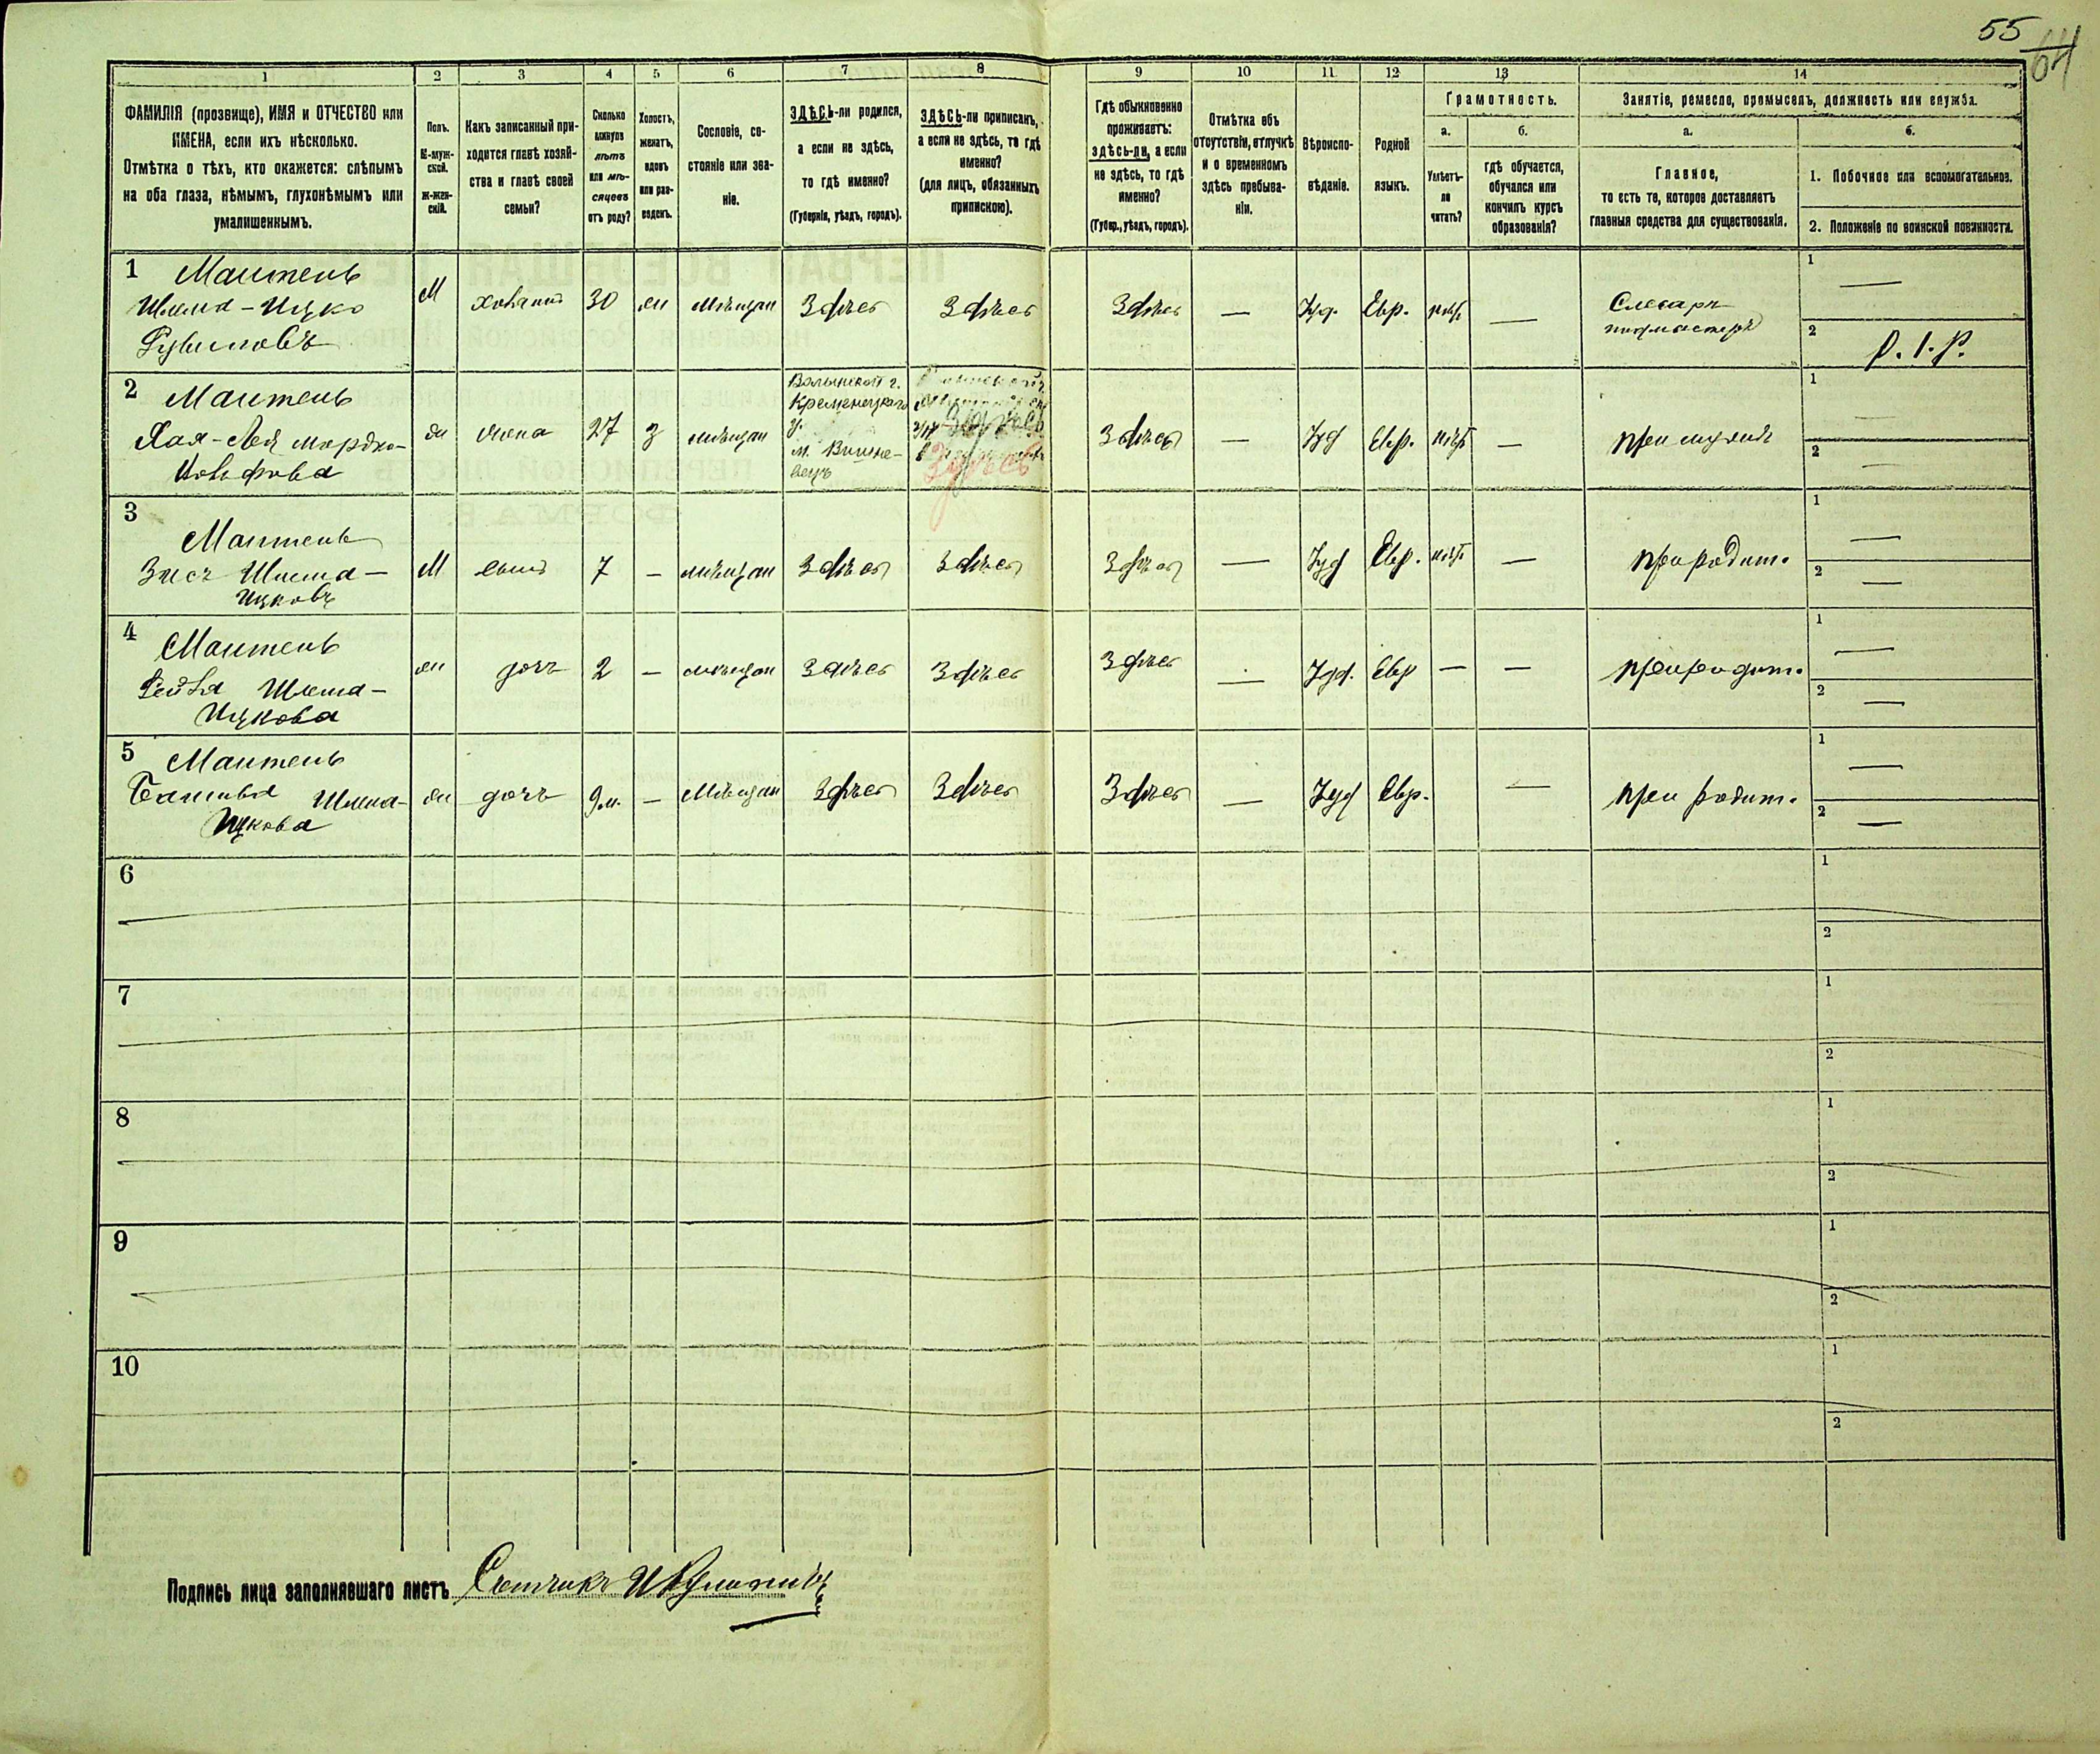 55
64
1 2 3 4 5 6 7 8 9 10 11 12 13 14
ФАМИЛІЯ (прозвище), ИМЯ и ОТЧЕСТВО или
ИМЕНА, если ихъ нѣсколько.
Отмѣтка о тѣхъ, кто окажется: слѣпымъ
на оба глаза, нѣмымъ, глухонѣмымъ или
умалишеннымъ.
Полъ.
М-муж-
ской.
Ж-жен-
скій.
Какъ записанный при-
ходится главѣ хозяй-
ства и главѣ своей
семьи?
Сколько
минуло
лѣтъ
или мѣ-
сяцевъ
отъ роду?
Холостъ,
женатъ,
вдовъ
или раз-
веденъ.
Сословіе, со-
стояніе или зва-
ніе.
ЗДѢСЬ-ли родился,
а если не здѣсь,
то гдѣ именно?
(Губернія, уѣздъ, городъ).
ЗДѢСЬ-ли приписанъ,
а если не здѣсь, то гдѣ
именно?
(для лицъ, обязанныхъ
припискою).
Гдѣ обыкновенно
проживаетъ:
здѣсь-ли, а если
не здѣсь, то гдѣ
именно?
(Губер., уѣздъ, городъ).
Отмѣтка объ
отсутствіи, отлучкѣ
и о временномъ
здѣсь пребыва-
ніи.
Вѣроиспо-
вѣданіе.
Родной
языкъ.
Грамотность.
а.
Умѣетъ-
ли
читать?
б.
гдѣ обучается,
обучался или
кончилъ курсъ
образованія?
Занятіе, ремесло, промыселъ, должность или служба.
а.
Главное,
то есть то, которое доставляетъ
главныя средства для существованія.
б.
1. Побочное или вспомогательное.
2. Положеніе по воинской повинности.
1 Маитель
Шлема-Ицко
Рувиновъ
М
хозяинъ
30
жн
мѣщан
Здѣсь
Здѣсь
Здѣсь
—
Іуд.
Евр.
нѣт
—
Слесарь
подмастерье
1 —
2 Р. I. Р.
2 Маитель
Хая-Лея Мордко-
Вольфова
жн
жена
27
З
мѣщан
Волынской г.
Кременецкаго
у.
м. Вишне-
вецъ
Здѣсь
Здѣсь
Здѣсь
—
Іуд
Евр.
нѣт
—
при мужѣ
1 —
2 —
3
Маитель
Зисъ Шлема-
Ицковъ
М
сынъ
7
—
мѣщан
Здѣсь
Здѣсь
Здѣсь
—
Іуд
Евр.
нѣт
—
при родит.
1 —
2 —
4
Маитель
Рейзя Шлема-
Ицкова
жн
дочь
2
—
мѣщан
Здѣсь
Здѣсь
Здѣсь
—
Іуд.
Евр
—
—
при родит.
1 —
2 —
5 Маитель
Батшва Шлема-
Ицкова
жн
дочь
9 м.
—
Мѣщан
Здѣсь
Здѣсь
Здѣсь
—
Іуд
Евр.
—
при родит.
1 —
2 —
6
1
2
7
1
2
8
1
2
9
1
2
10
1
2
Подпись лица заполнявшаго листъ Счетчикъ